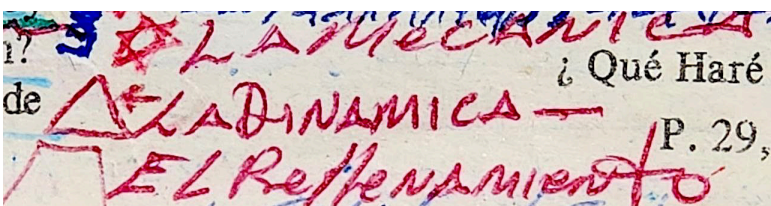 LA MeCANICA
n? ¿Qué Haré
de LA DINAMICA —
P. 29,
EL ReLLeNAMIENTO